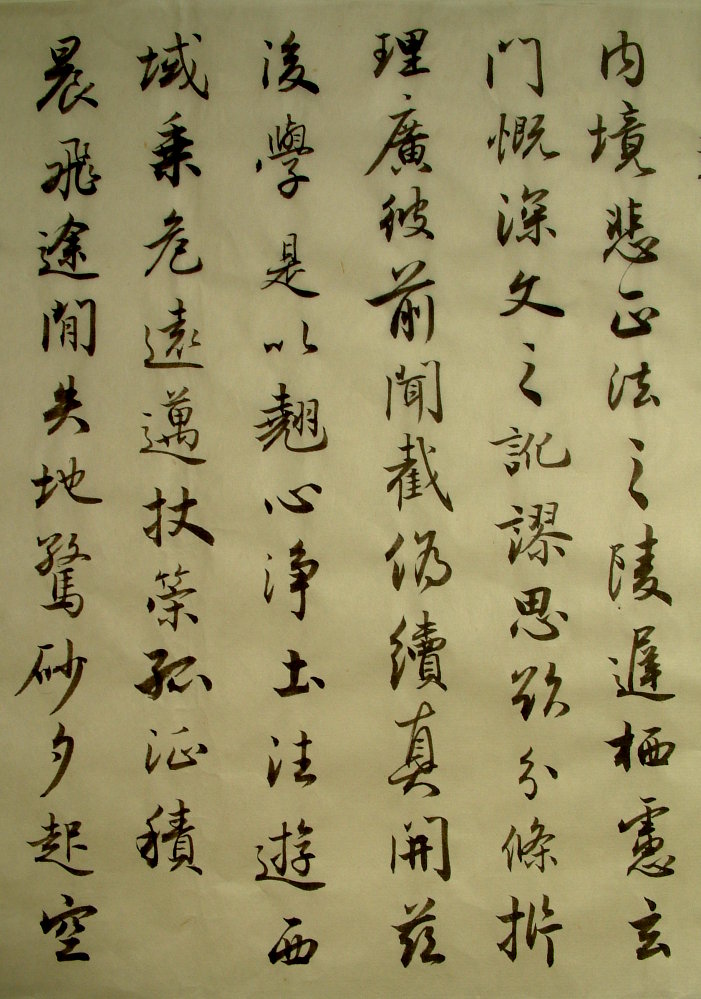 内境悲正法之陵遲栖慮玄
門慨深文之訛謬思欲分條析
理廣彼前聞截偽續真開茲
後學是以翹心淨土往遊西
域乘危遠邁杖策孤征積
晨飛途閒失地驚砂夕起空